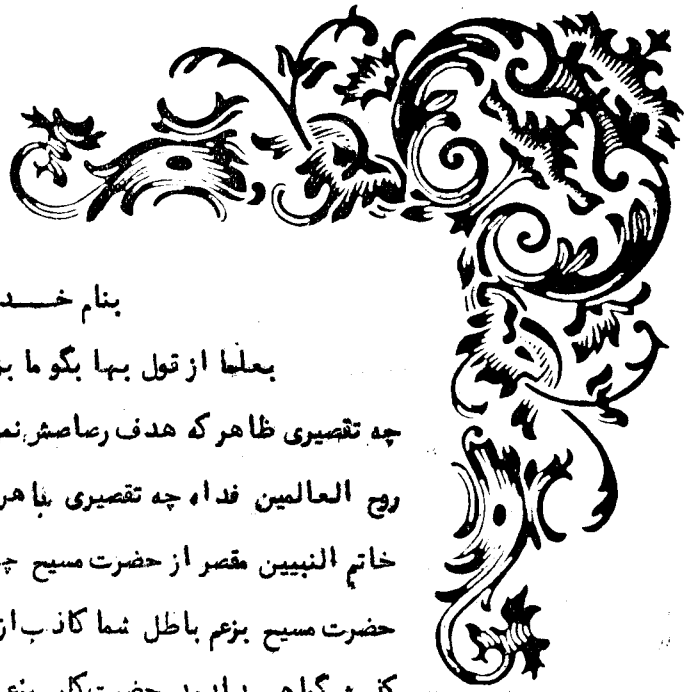 بنام خـــد
بعلما از قول بها بگو ما بز
چه تقصیری ظاهر که هدف رصاصش نم
روح العالمین فداه چه تقصیری ظاهر
خاتم النبیین مقصر از حضرت مسیح چ
حضرت مسیح بزعم باطل شما کاذب از